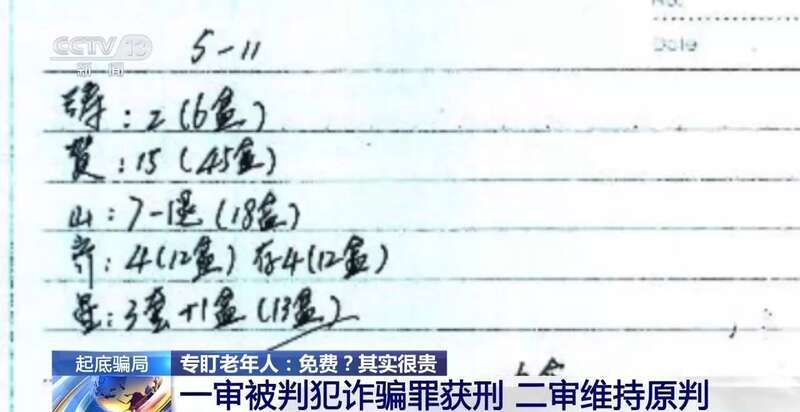 No.
Date
CCTV 13
新闻
5-11
: 2(6盒)
贺: 15 (45盒)
山: 7-1退 (18盒)
齐: 4(12盒) 存4(12盒)
星: 3套+1盒(13盒)
起底骗局
专盯老年人：免费？其实很贵
一审被判犯诈骗罪获刑 二审维持原判